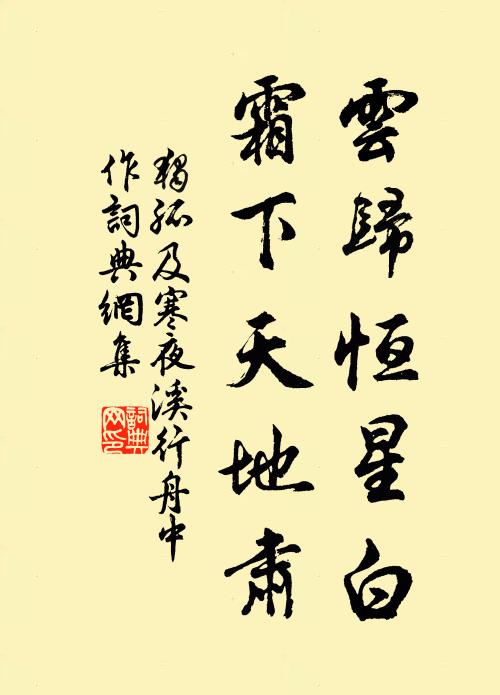 雲歸恒星白
霜下天地肅
獨孤及寒夜溪行舟中
作詞典網集
詞典網印